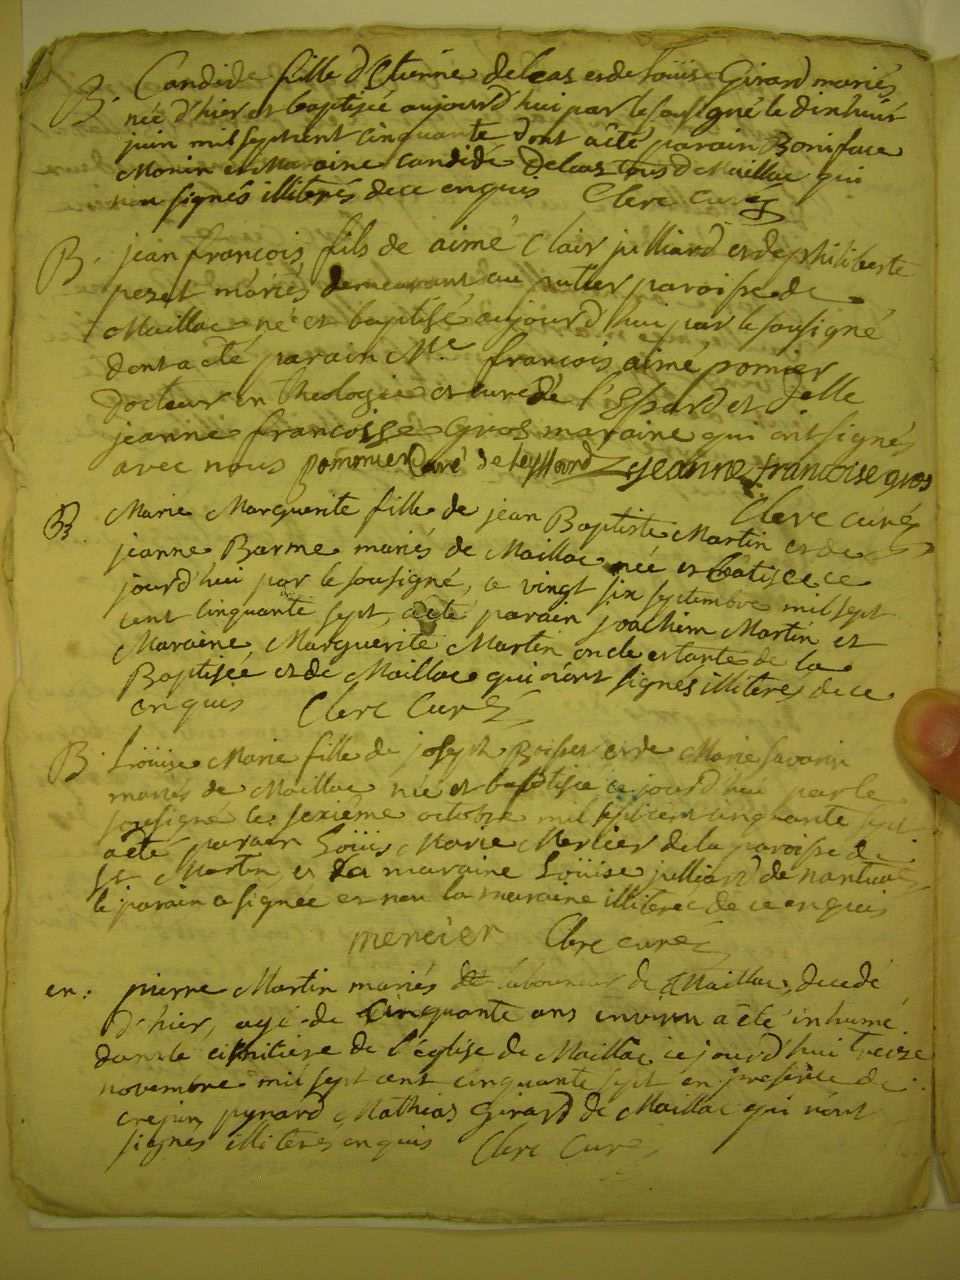 B. Candide fille d'Etienne deleas et de Loüise Girard mariés
née d'hier et baptisée aujourd'hui par le sousigné le dixhuit
juin mil sept cent cinquante dont a été parain Boniface
Monin et Maraine candide Deleas tous de Maillac qui
non signés illiterés de ce enquis Clerc curé
B. jean françois fils de aimé Clair julliard et de philiberte
pezet mariés demeurant au paroisse de
Maillac né et baptisé aujourd'hui par le sousigné
dont a été parain Mre françois aimé pomier
Docteur en theologie et curé de et delle
jeanne francoise Gros maraine qui ont signés
avec nous pommier Curé de leyssard jeanne francoise gros
Clerc curé
B. Marie Marguerite fille de jean Baptiste Martin et de
jeanne Barme mariés de Maillac née et batisee ce
jourd'hui par le sousigné, ce vingt six septembre mil sept
cent cinquante sept, a été parain joachim Martin et
Maraine Marguerite Martin oncle et tante de la
Baptisée et de Maillac qui n'ont signes illiterés de ce
enquis Clerc Curé
B. Loüise Marie fille de joseph et de Marie savarin
mariés de Maillac née et baptisée ce jourd'hui par le
sousigné le sexième octobre mil sept cent cinquante sept
a été parain Loüis Marie Mercier de la paroise de
St Martin et la maraine Loüise julliard de nantua
le parain a signée et non la maraine illiterée de ce enquis
mercier Clerc curé
en: pierre Martin mariés laboureur de Maillac, decedé
d'hier, agé de Cinquante ans environ a été inhumé
dans le cimitiere de l'église de Maillac ce jourd'hui treize
novembre mil sept cent cinquante sept en presence de
crepin pynard Mathias Girard de Maillac qui n'ont
signes illiteres enquis Clerc Curé